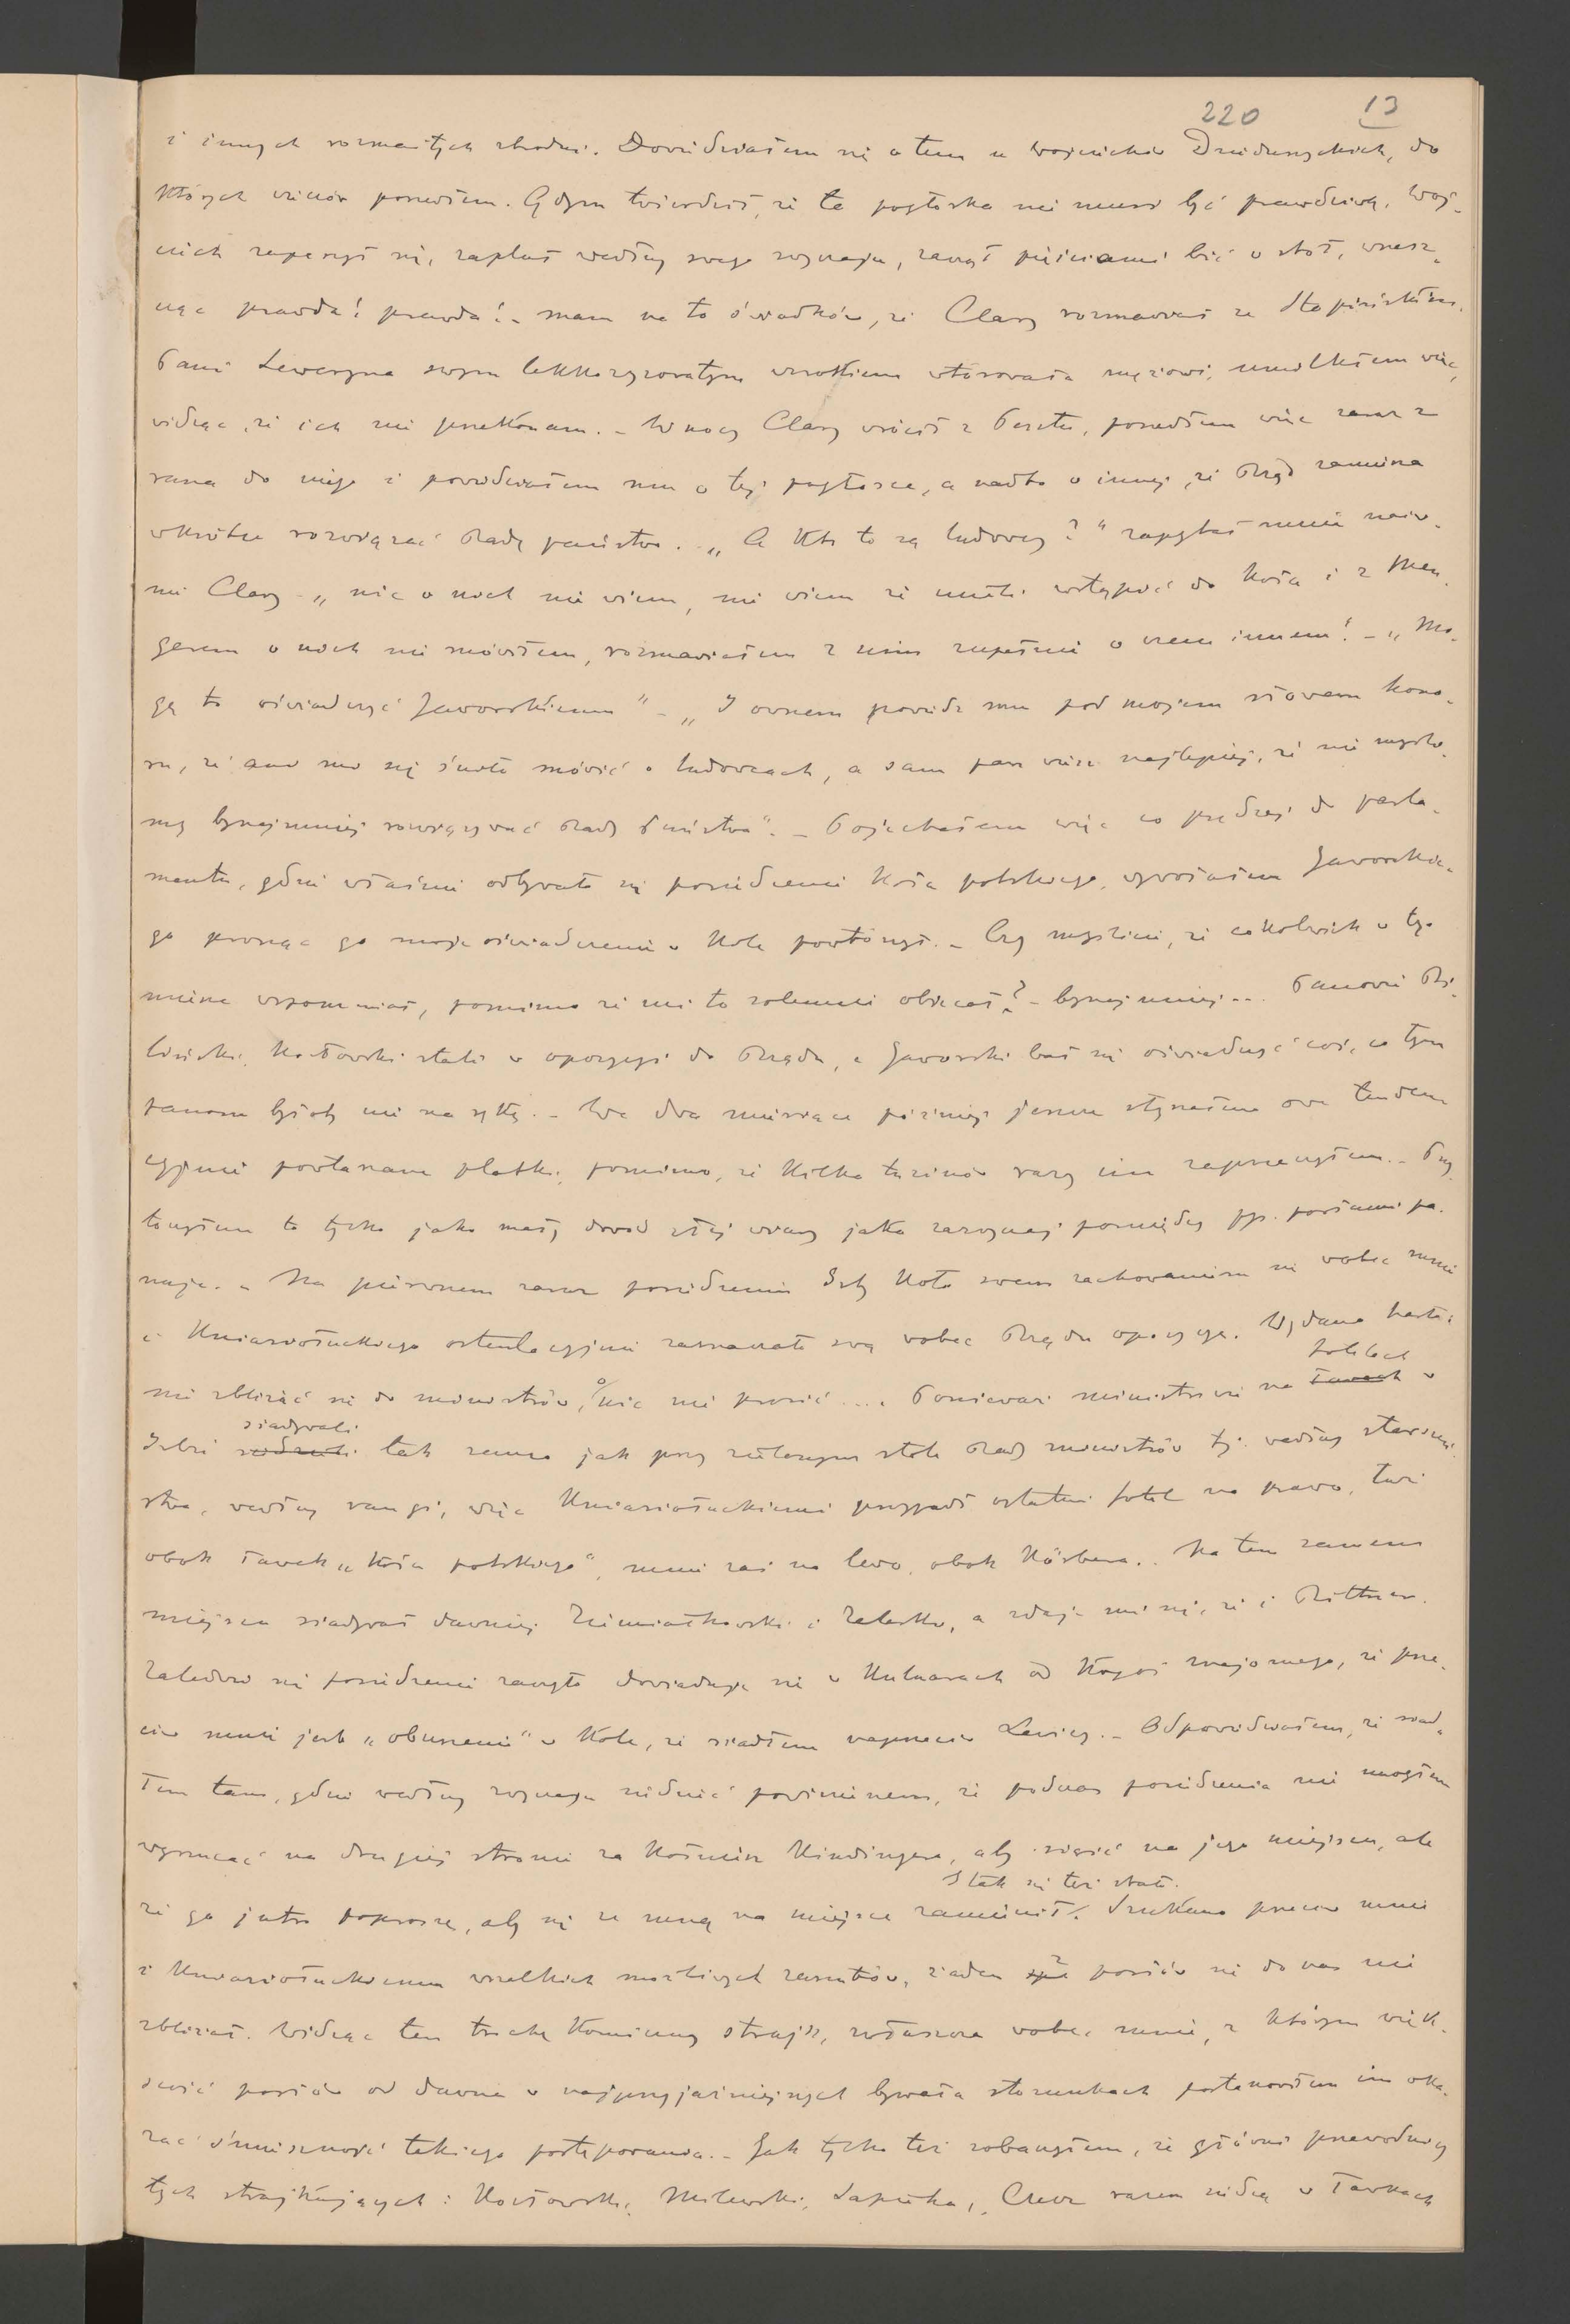 220 13
i innych rozmaitych zbrodni. Dowiedziałem się o tem u Wojciechów Dzieduszyckich, do
których wieczór poszedłem. Gdym twierdził, że ta pogłoska nie musi być prawdziwą, Woj-
ciech zaperzył się, zapluł według swego zwyczaju, zaczął pięściami bić o stół, wrzesz-
cząc prawda! prawda! – mam na to świadków, że Clary rozmawiał ze Stapińskim.
Pani Seweryna swym lekko zyzowatym wzrokiem wtórowała mężowi, umilkłem więc,
widząc, że ich nie przekonam. – W nocy Clary wrócił z Pesztu, poszedłem więc zaraz z
rana do niego i powiedziałem mu o tej pogłosce, a nadto o innej, że Rząd zamierza
wkrótce rozwiązać Radę państwa. „A kto to są ludowcy?" zapytał mnie naiw-
nie Clary – „nic o nich nie wiem, nie wiem że mieli wstąpić do Koła i z Men-
gerem o nich nie mówiłem, rozmawiałem z nim zupełnie o czem innem! – „Mo-
gę to oświadczyć Jaworskiemu" – „I owszem powiedz mu pod mojem słowem hono-
ru, że ani mi się śniło mówić o ludowcach, a sam pan wiesz najlepiej, że nie myśli-
my bynajmniej rozwiązywać Rady Państwa". – Pojechałem więc co prędzej do parla-
mentu, gdzie właśnie odbywało się posiedzenie Koła polskiego, wywołałem Jaworskie-
go prosząc go moje oświadczenie w Kole powtórzył. – Czy myślicie, że cokolwiek o tym
wspomniał, pomimo że mi to solennie obiecał? – bynajmniej... Panowie Bi-
liński, Kozłowski stali w opozycyi do Rządu, a Jaworski bał się oświadczyć coś, co tym
panom byłoby nie na rękę. – We dwa miesiące później jeszcze słyszałem ową tenden-
cyjnie powtarzaną plotkę, pomimo, że kilka tuzinów razy im zaprzeczyłem. – Przy-
toczyłem to tylko jako mały dowód złej wiary jaka zazwyczaj pomiędzy pp. posłami pa-
nuje. – Na pierwszem zaraz posiedzeniu Izby Koło swem zachowaniem się wobec mnie
i Kniaziołuckiego ostentacyjnie zaznaczało swą wobec Rządu opozycyę. Wydano hasło:
nie zbliżać się do ministrów, o nic nie prosić.... Ponieważ ministrowie na fotelach w
Izbie siadywali tak samo jak przy zielonym stole Rady ministrów tj. według starszeń-
stwa, według rangi, więc Kniaziołuckiemu przypadł ostatni fotel na prawo, tuż
obok ławek „Koła polskiego", mnie zaś na lewo, obok Körbera.. Na tem samem
miejscu siadywał dawniej Ziemiałkowski i Zaleski, a zdaje mi się, że i Rittner.
Zaledwo się posiedzenie zaczęło dowiaduję się w kuluarach od kogoś znajomego, że prze-
ciw mnie jest „oburzenie" w Kole, że siadłem naprzeciw Lewicy. – Odpowiedziałem, że siad-
łem tam, gdzie według zwyczaju siedzieć powinienem, że podczas posiedzenia nie mogłem
wyrzucać na drugiej stronie za kołnierz Kindingera, aby siąść na jego miejscu, ale
że go jutro poproszę, aby się ze mną na miejsca zamienił. I tak się też stało. Szukano przeciw mnie
i Kniaziołuckiemu wszelkich możliwych zarzutów, żaden z posłów się do nas nie
zbliżał. Widząc ten trochę komiczny strajk, zwłaszcza wobec mnie, z którym więk-
szość posłów od dawna w najprzyjaźniejszych bywała stosunkach postanowiłem im oka-
zać śmieszność takiego postępowania. – Jak tylko też zobaczyłem, że główni przewodnicy
tych strajkujących: Kozłowski, Milewski, Sapieha, Czecz razem siedzą w ławkach